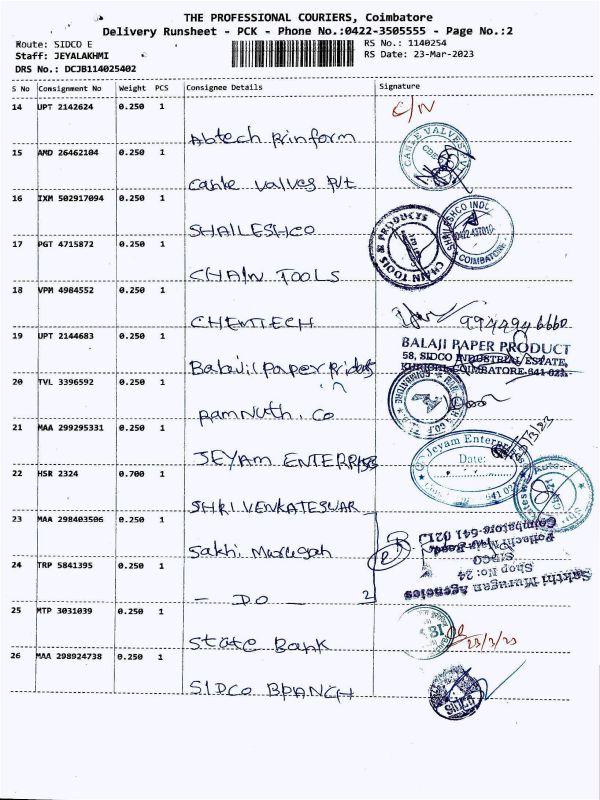 THE PROFESSIONAL COURIERS, Coimbatore
Delivery Runsheet - PCK - Phone No.:0422-3505555 - Page No.:2
Route: SIDCO E
RS No.: 1140254
Staff: JEYALAKHMI
RS Date: 23-Mar-2023
DRS No.: DCJB114025402
S No Consignment No Weight PCS Consignee Details Signature
14 UPT 2142624 0.250 1
Abtech Prinform
15 AMD 26462104 0.250 1
Cable valves Pvt
16 IXM 502917094 0.250 1
SHAILESHCO
17 PGT 4715872 0.250 1
CHAIN TOOLS
CHAIN TOOLS & PRODUCTS
SHAILESHCO INDU
COIMBATORE
18 VPM 4984552 0.250 1
CHEMTECH
9944946660
19 UPT 2144683 0.250 1
BALAJI PAPER PRODUCT
58, SIDCO INDUSTRIAL ESTATE,
COIMBATORE-641 021.
Balaji paper
20 TVL 3396592 0.250 1
Ramnuth. Co
21 MAA 299295331 0.250 1
JEYAM ENTERPRISE
Jeyam Enterprises
Date:
641 021
22 HSR 2324 0.700 1
SHRI VENKATESWAR
23 MAA 298403506 0.250 1
Sakhi Murugan
Sakthi Murugan Agencies
Shop No: 24
SIDCO
Pollachi Main Road,
Coimbatore-641 021
24 TRP 5841395 0.250 1
- DO - 2
25 MTP 3031039 0.250 1
State Bank
23/3/23
26 MAA 298924738 0.250 1
SIDCO BRANCH
SIDCO